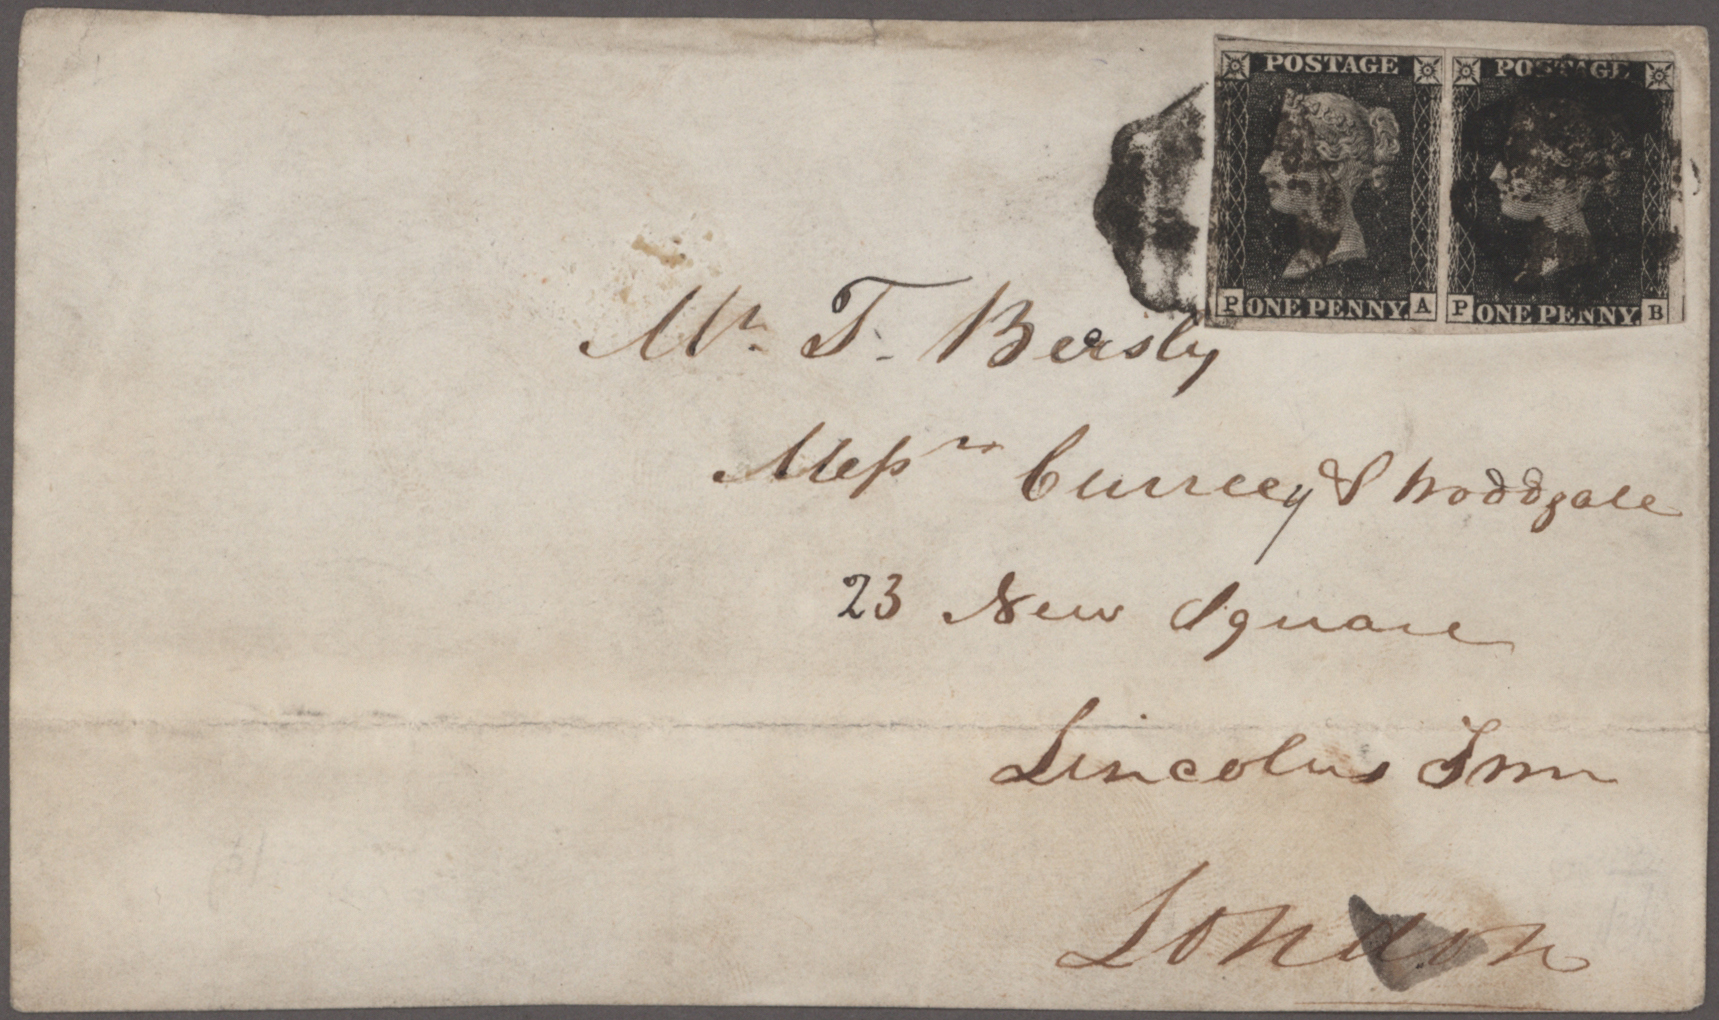 POSTAGE POSTAGE
P ONE PENNY. A P ONE PENNY. B
Mr. T. Bersby
Messrs Currey & Woodgate
23 New Square
Lincolns Inn
London